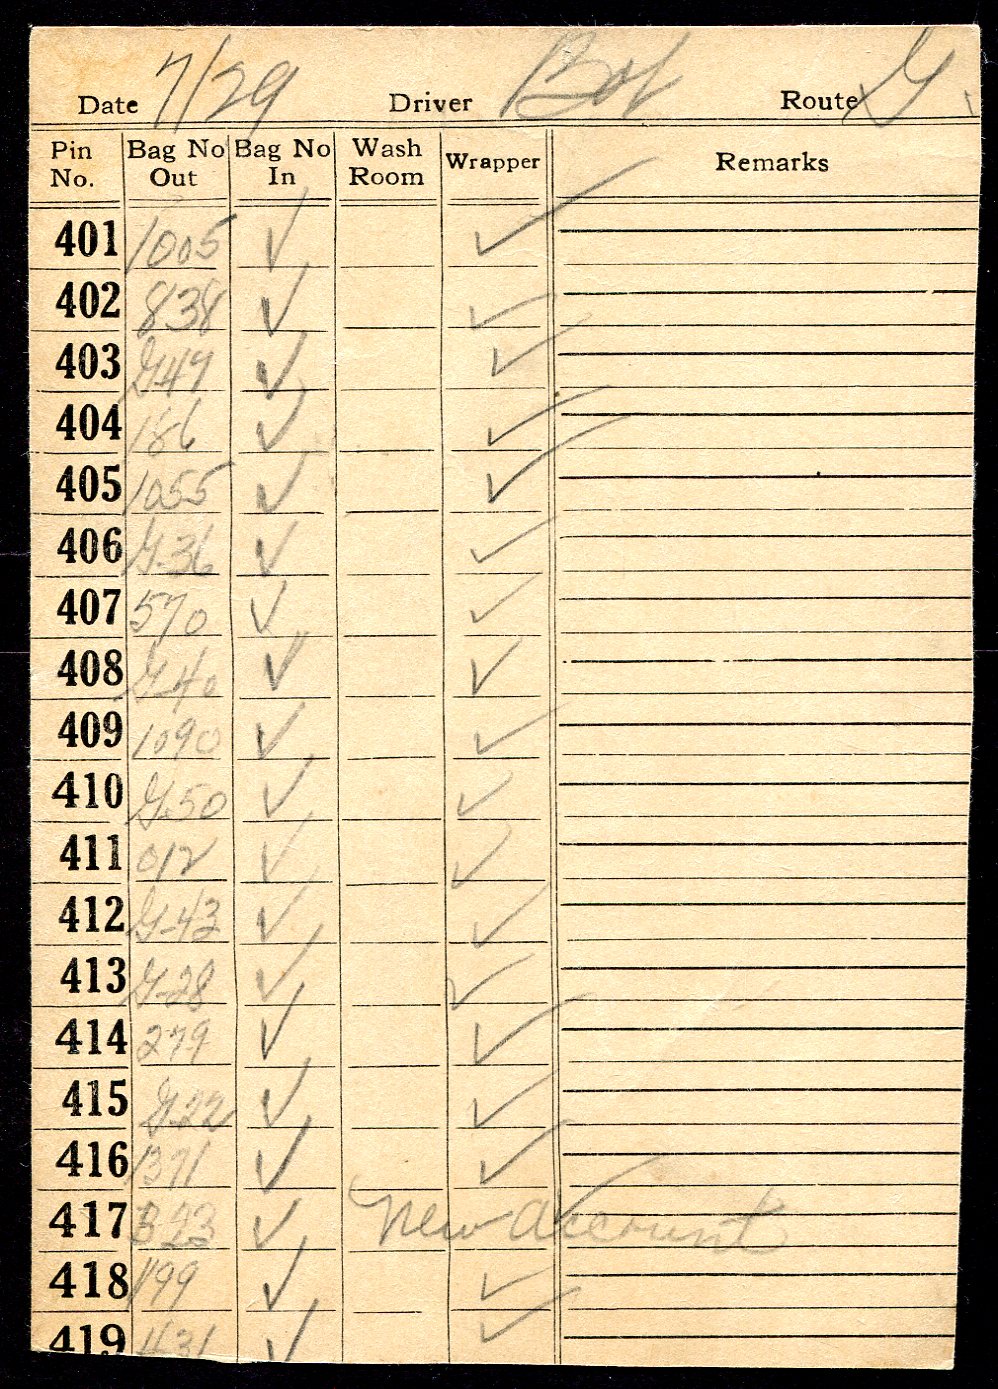 Date 7/29 Driver Bob Route G.
Pin No. Bag No Out Bag No In Wash Room Wrapper Remarks
401 1005 ✓ ✓
402 838 ✓ ✓
403 G-49 ✓ ✓
404 186 ✓ ✓
405 1055 ✓ ✓
406 G-36 ✓ ✓
407 570 ✓ ✓
408 G-40 ✓ ✓
409 1090 ✓ ✓
410 G-50 ✓ ✓
411 012 ✓ ✓
412 G-43 ✓ ✓
413 G-28 ✓ ✓
414 279 ✓ ✓
415 G-22 ✓ ✓
416 1371 ✓ ✓
417 ✓ New Account ✓
418 1199 ✓ ✓
419 1131 ✓ ✓